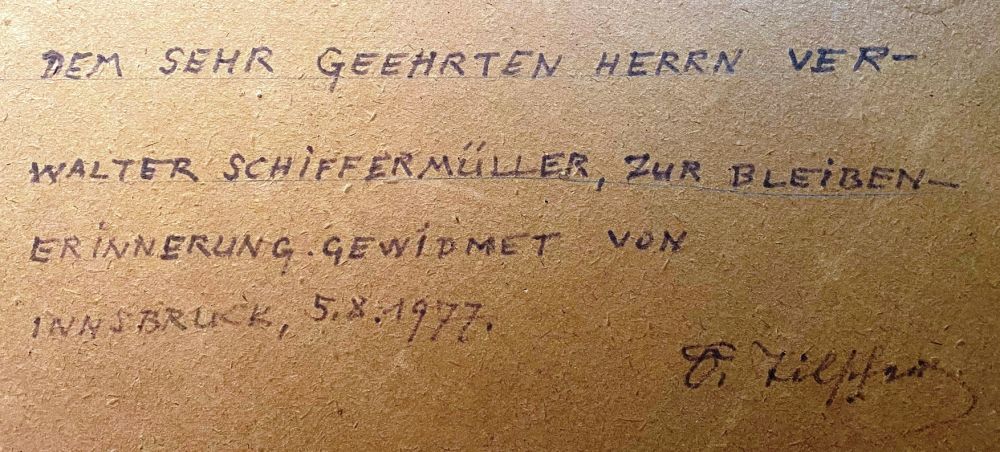 DEM SEHR GEEHRTEN HERRN VER-
WALTER SCHIFFERMÜLLER, ZUR BLEIBEN-
ERINNERUNG. GEWIDMET VON
INNSBRUCK, 5.8.1977.